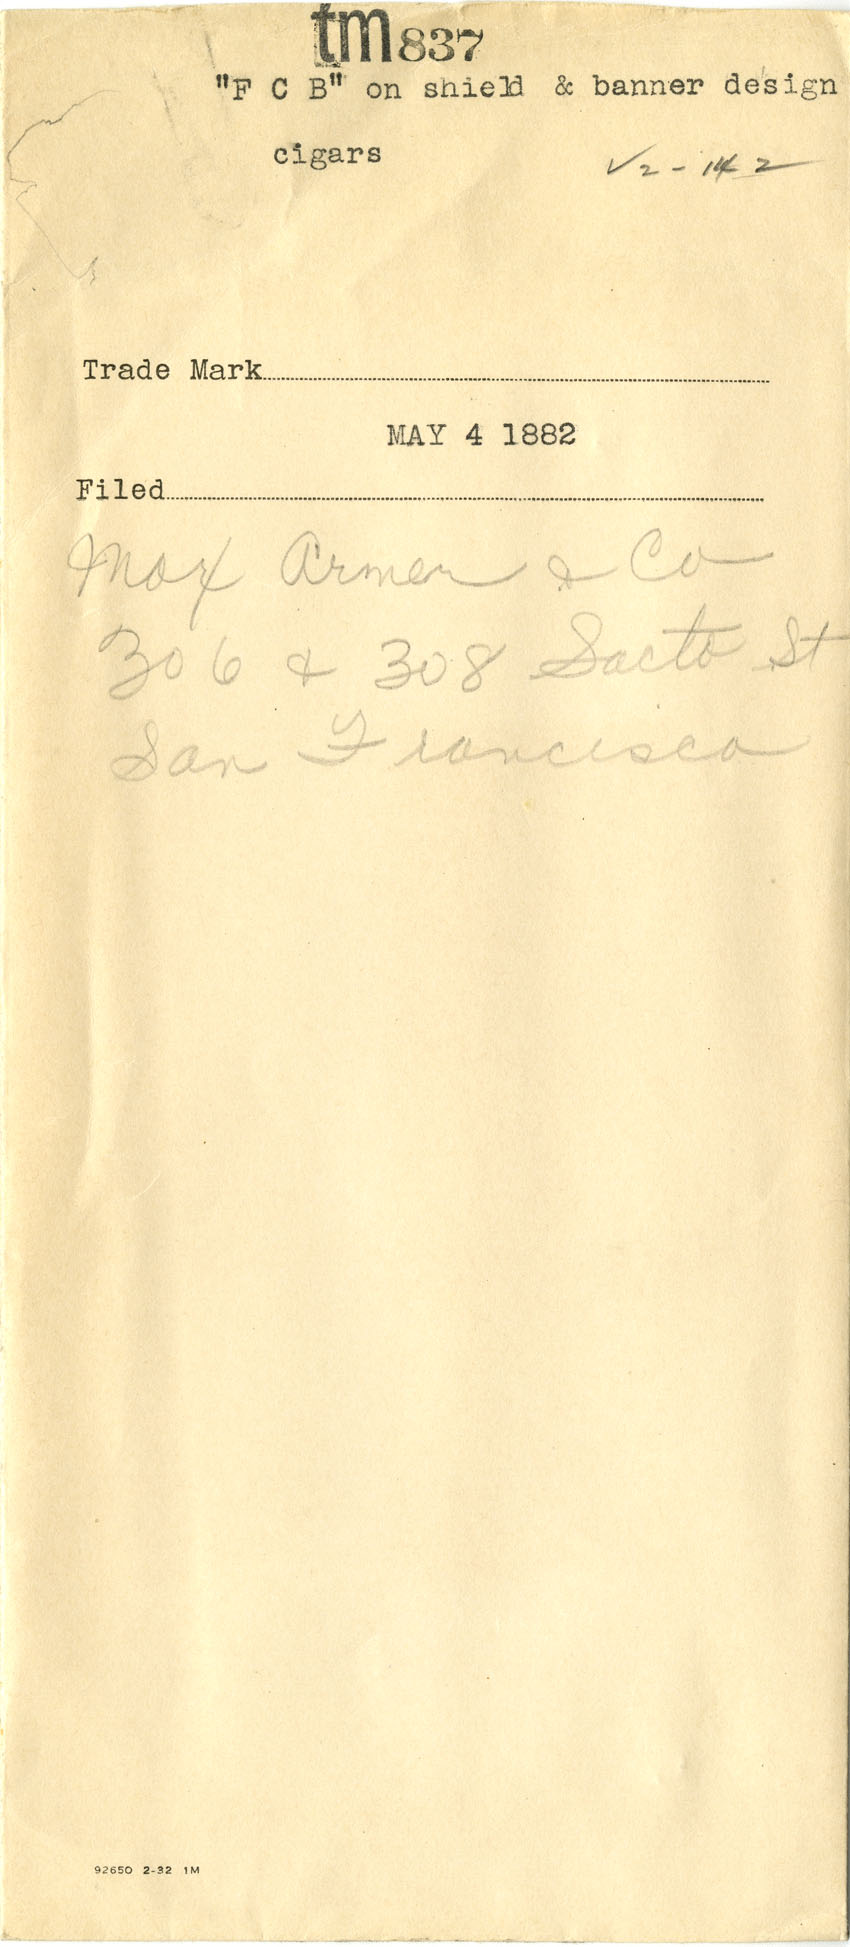 tm837
"F C B" on shield & banner design
cigars
V2-142
Trade Mark
MAY 4 1882
Filed
Max Armer & Co
306 & 308 Sacto St
San Francisco
92650 2-32 1M